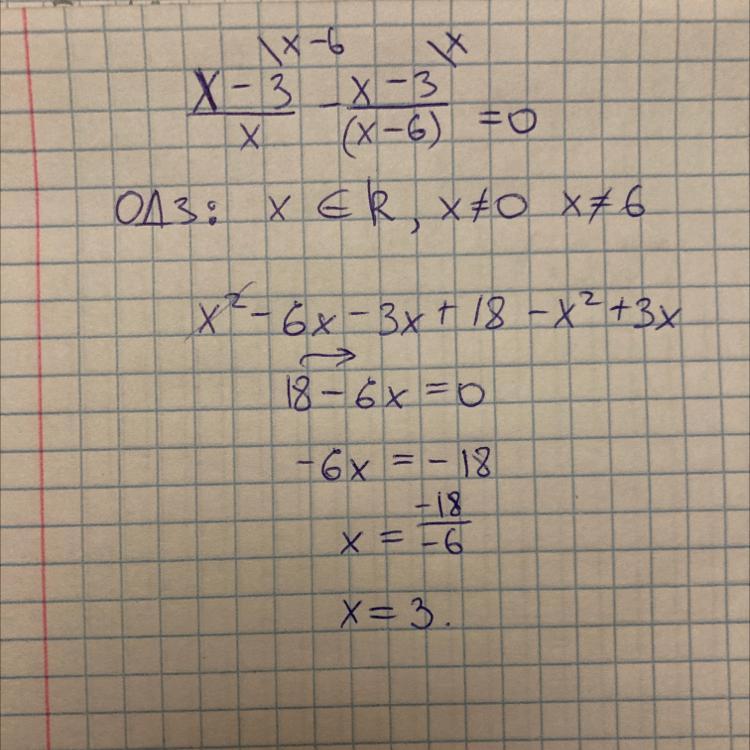 \x-6 \x
x-3/x - x-3/(x-6) =0
ОДЗ: x ∈ R, x≠0 x≠6
x² - 6x - 3x + 18 - x² + 3x
18 - 6x = 0
-6x = -18
x = -18/-6
x = 3.